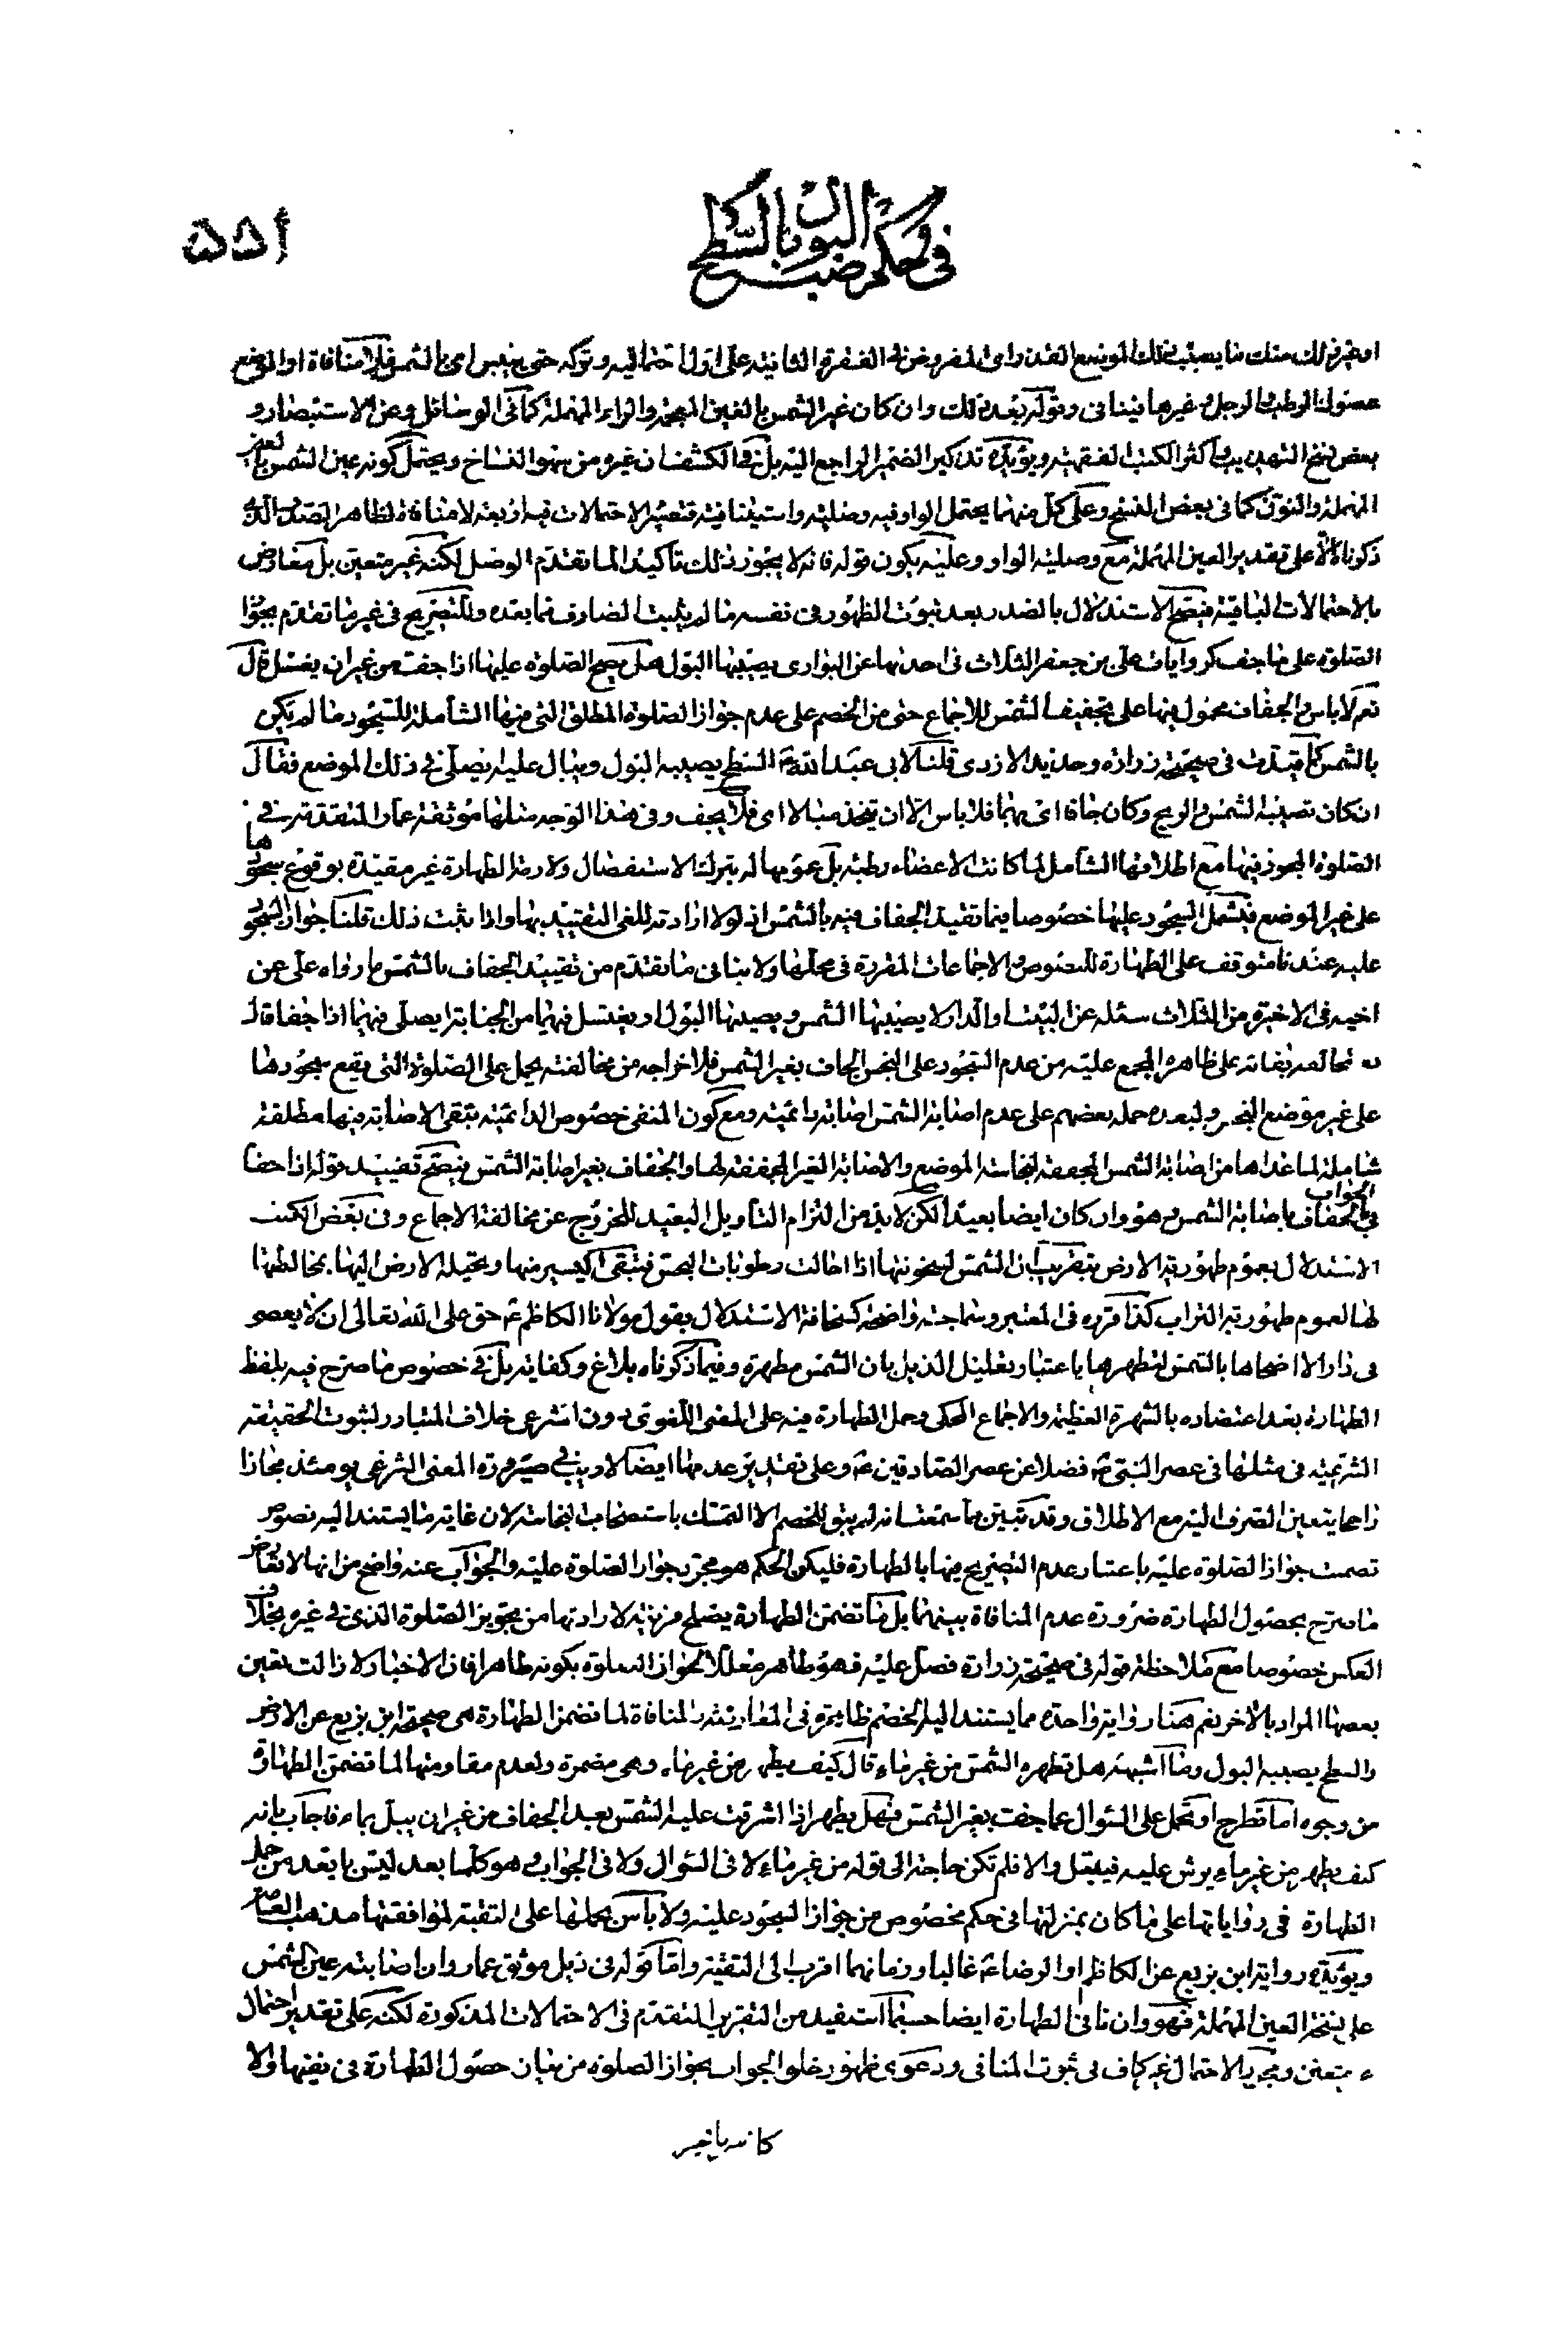 في حكم البول بالسطح
أ۵۵
او غير ذلك منك ما يصيب ذلك الموضع القذر اى المفروض فى الفقرة الثانية على اول احتماليه وتركه حتى ييبس اى بالشمس فلا منافاة او الموضع
بعض نسخ التهذيب واكثر الكتب الفقهية ويؤيده تذكير الضمير الراجع اليه بل فى الكشف ان غيره من سهو النساخ ويحتمل كونه عين الشمس بالعين
المهملة والنون كما فى بعض النسخ وعلى كل منهما يحتمل الواو فيه وصلية واستينافية فتصير الاحتمالات فيه اربعة لا منافاة لظاهر الصدر الذى
ذكرنا الا على تقدير العين المهملة مع وصلية الواو وعليه يكون قوله فانه لا يجوز ذلك تاكيدا لما تقدم الوصل لكنه غير متعين بل معارض
بالاحتمالات الباقية فيصح الاستدلال بالصدر بعد ثبوت الظهور فى نفسه ما لم يثبت الصارف مما بعده وللتصريح فى غير ما تقدم بجواز
الصلوة على ما جف كروايات على بن جعفر الثلاث فى احدها عن البوارى يصيبها البول هل يصح الصلوة عليها اذا جفت من غير ان يغسل قال
نعم لا باس والجفاف محمول فيها على تجفيف الشمس للاجماع حتى من الخصم على عدم جواز الصلوة المطلق التى منها الشاملة للسجود ما لم يكن
بالشمس كما قيدت فى صحيحة زرارة وحديد الازدى قلنا لابى عبد الله السطح يصيبه البول ويبال عليه يصلى فى ذلك الموضع فقال
ان كان تصيبه الشمس والريح وكان جافا اى بهما فلا باس الا ان يتخذ مبالا اى فلا يجف وفى هذا التوجه مثلها موثقة عمار المتقدمة
الصلوة المجوز فيها مع اطلاقها الشامل لما كانت الاعضاء رطبة بل عمومها له بترك الاستفصال ولارادة الطهارة غير مقيدة بوقوع سجودها
على غير الموضع فتشمل السجود عليها خصوصا فيما تقيد الجفاف فيه بالشمس اذ لولا ارادته للغى التقييد بها واذا ثبت ذلك قلنا جواز السجود
عليه عندنا متوقف على الطهارة للنصوص والاجماعات المقررة فى محلها ولا ينافى ما تقدم من تقييد الجفاف بالشمس ما رواه على عن
اخيه فى الاخيرة من الثلاث سئله عن البيت والدار لا يصيبها الشمس ويصيبها البول او يغتسل فيهما من الجنابة ايصلى فيهما اذا جفا قال
على ظاهره المجمع عليه من عدم السجود على النجس الجاف بغير الشمس فلاخراجه من مخالفته يحمل على الصلوة التى يقع سجودها
على غير موضع النجس ولبعده حمله بعضهم على عدم اصابة الشمس اصابة دائمية ومع كون المنفى خصوص الدائمية تبقى الاصابة فيها مطلقة
شاملة لما عداها من اصابة الشمس المجففة لنجاسة الموضع والاصابة الغير المجففة لها والجفاف بغير اصابة الشمس فيصح تقييد قوله اذا جفا
فى الجواب بالجفاف باصابة الشمس وهو وان كان ايضا بعيدا لكن لا بد من التزام التأويل البعيد للخروج عن مخالفة الاجماع وفى بعض الكتب
الاستدلال بعموم طهورية الارض بتقريب ان الشمس لسخونتها اذا احالت رطوبات البحت فتبقى اليسير منها ويحيله الارض اليها بمخالطتها
لها لعموم طهورية التراب كذا قرره فى المعتبر وسماجته واضحة كسخافة الاستدلال بقول مولانا الكاظم ع حق على الله تعالى ان لا يعصى
فى دار الا اضحاها بالشمس لتطهرها باعتبار تعليل الذيل بان الشمس مطهرة وفيما ذكرناه بلاغ وكفاية بل فى خصوص ما صرح فيه بلفظ
الطهارة بعد اعتضاده بالشهرة العظيمة والاجماع المحكى وحمل الطهارة فيه على المعنى اللغوى دون الشرعى خلاف المتبادر لثبوت الحقيقة
الشرعية فى مثلها فى عصر النبى ص فضلا عن عصر الصادقين ع وعلى تقدير عدمها ايضا لا ريب فى صيرورة المعنى الشرعى يومئذ مجازا
راجحا يتعين الصرف اليه مع الاطلاق وقد تبين بما سمعت انه لم يبق للخصم الا التمسك باستصحاب النجاسة لان غاية ما يستند اليه نصوص
تضمنت جواز الصلوة عليه باعتبار عدم التصريح فيها بالطهارة فليكن الحكم هو مجرد جواز الصلوة عليه والجواب عنه واضح من انها لا تعارض
ما صرح بحصول الطهارة ضرورة عدم المنافاة بينهما بل ما تضمن الطهارة يصلح قرينة لارادتها من تجويز الصلوة الذى فى غيره بخلاف
العكس خصوصا مع ملاحظة قوله فى صحيحة زرارة فصل عليه فهو طاهر معللا لجواز الصلوة بكونه طاهرا فان الاخبار لا زالت يعين
بعضها المراد بالاخر نعم هنا رواية واحدة مما يستند اليه الخصم ظاهرة فى المعارضة والمنافاة لما تضمن الطهارة هى صحيحة ابن بزيع عن الارض
والسطح يصيبه البول وما اشبهه هل تطهره الشمس من غير ماء قال كيف يطهر من غير ماء وهى مضمرة ولعدم مقاومتها لما تضمن الطهارة
من وجوه اما تطرح او تحمل على السؤال عما جفت بغير الشمس فهل يطهر اذا اشرقت عليه الشمس بعد الجفاف من غير ان يبل بماء فاجاب بانه
كيف يطهر من غير ماء يرش عليه فيبتل والا فلم تكن حاجة الى قوله من غير ماء لا فى السؤال ولا فى الجواب وهو كلما بعد ليس بابعد من حمل
الطهارة فى رواياتها على ما كان بمنزلتها فى حكم مخصوص من جواز السجود عليه ولا بأس بحملها على التقية لموافقتها مذهب العامة
ويؤيده رواية ابن بزيع عن الكاظم او الرضا ع غالبا وزمانهما اقرب الى التقية واما قوله فى ذيل موثق عمار وان اصابته عين الشمس
على نسخة العين المهملة فهو وان نافى الطهارة ايضا حسبما استفيد من التقرير المتقدم فى الاحتمالات المذكورة لكنه على تقدير احتمال
متعين ومجرد الاحتمال غير كاف فى ثبوت المنافى ودعوى ظهور خلو الجواب بجواز الصلوة من بيان حصول الطهارة فى نفيها والا